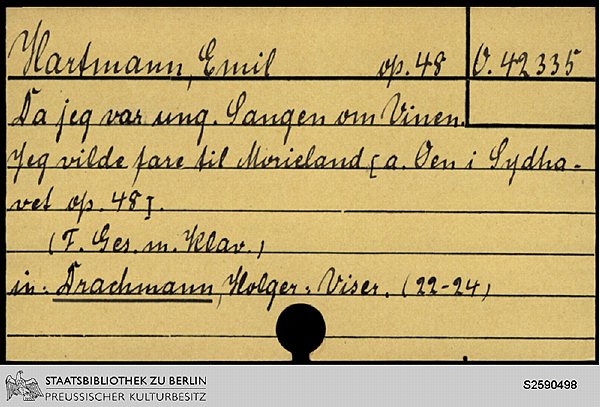 Hartmann, Emil op. 48 O. 42335
Da jeg var ung. Sangen om Vinen.
Jeg vilde fare til Morieland [a. Oen i Sydha-
vet op. 48].
(F. Ges. m. Klav.)
in: Drachmann, Holger: Viser. (22-24)
STAATSBIBLIOTHEK ZU BERLIN
PREUSSISCHER KULTURBESITZ
S2590498